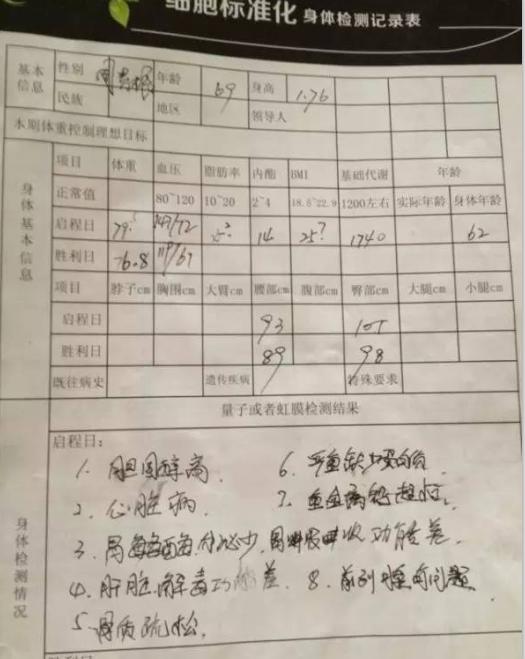 细胞标准化 身体检测记录表
基本信息 性别 年龄 69 身高 1.76
民族 地区 领导人
本期体重控制理想目标
身体基本信息
项目 体重 血压 脂肪率 内脂 BMI 基础代谢 年龄
正常值 80~120 10~20 2~4 18.5~22.9 1200左右 实际年龄 身体年龄
启程日 147/72 14 1740 62
胜利日 76.8 119/67
项目 脖子cm 胸围cm 大臂cm 腰部cm 腹部cm 臀部cm 大腿cm 小腿cm
启程日 93 101
胜利日 89 98
既往病史 遗传疾病 特殊要求
量子或者虹膜检测结果
身体检测情况
启程日：
1. 胆固醇高
6. 严重缺
2. 心脏病
7.
3. 胃 分泌少 胃 吸收功能差
4. 肝脏解毒功能差 8. 前列腺有问题
5. 骨质疏松